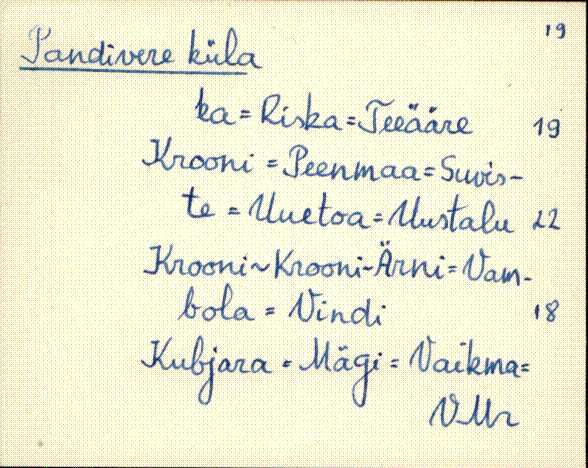 19
Pandivere küla
ka = Riska = Teeääre 19
Krooni = Peenmaa = Suvis-
te = Uuetoa = Uustalu 22
Krooni ~ Krooni-Ärni = Vam-
bola = Vindi 18
Kubjara = Mägi = Vaikma =
VMr